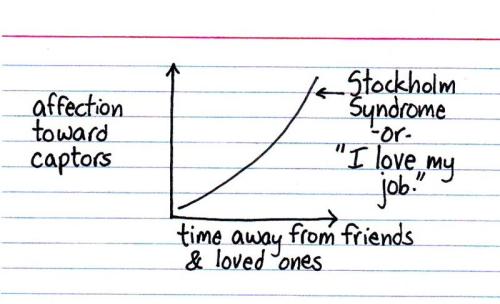 affection
toward
captors
Stockholm
Syndrome
-or-
"I love my
job."
time away from friends
& loved ones